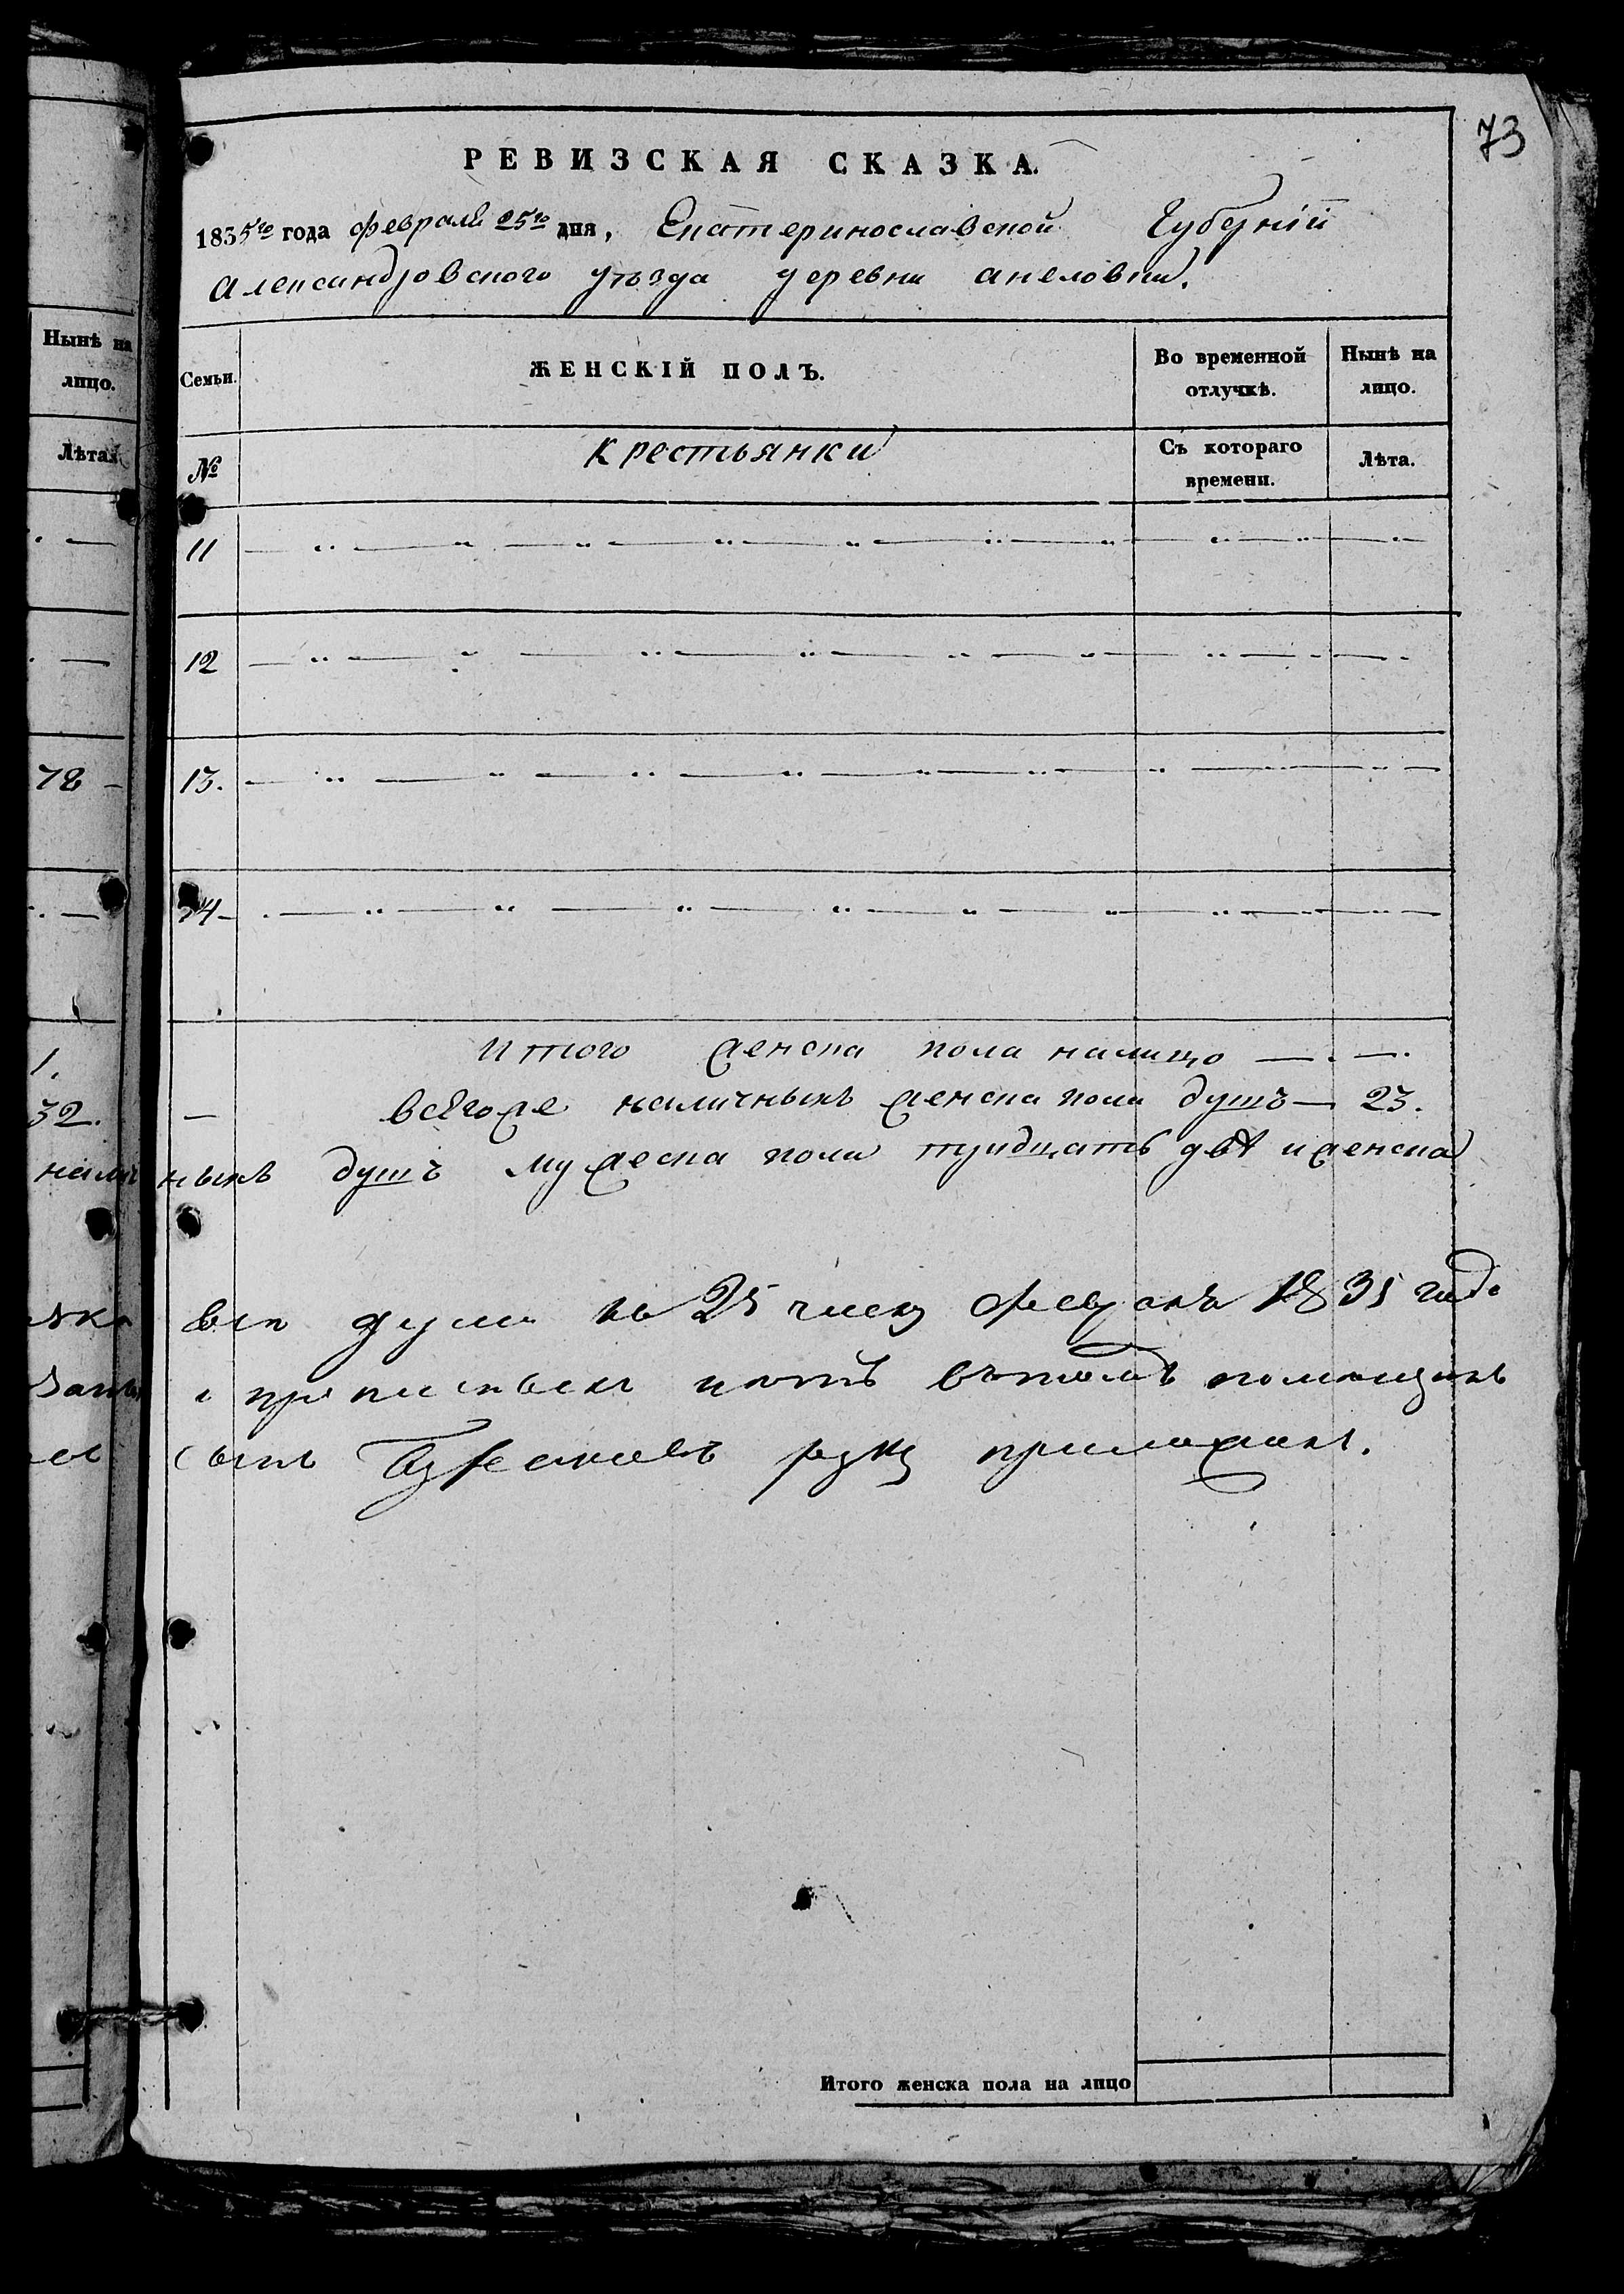 73
РЕВИЗСКАЯ СКАЗКА.
1835го года февраля 25го дня, Екатеринославской Губерніи
Александровского уѣзда деревни анеловки.
Нынѣ на лицо.
Лѣта.
78
1.
32.
Семьи. ЖЕНСКІЙ ПОЛЪ. Во временной отлучкѣ. Нынѣ на лицо.
№ Крестьянки Съ котораго времени. Лѣта.
11
12
13.
14
Итого женска пола налицо
всегоже наличныхъ женска пола душъ — 23.
наличныхъ душъ мужеска пола тридцать две и женска
душъ къ 25 числу февраля 1835 года
въ томъ помещикъ
руку приложилъ.
Итого женска пола на лицо